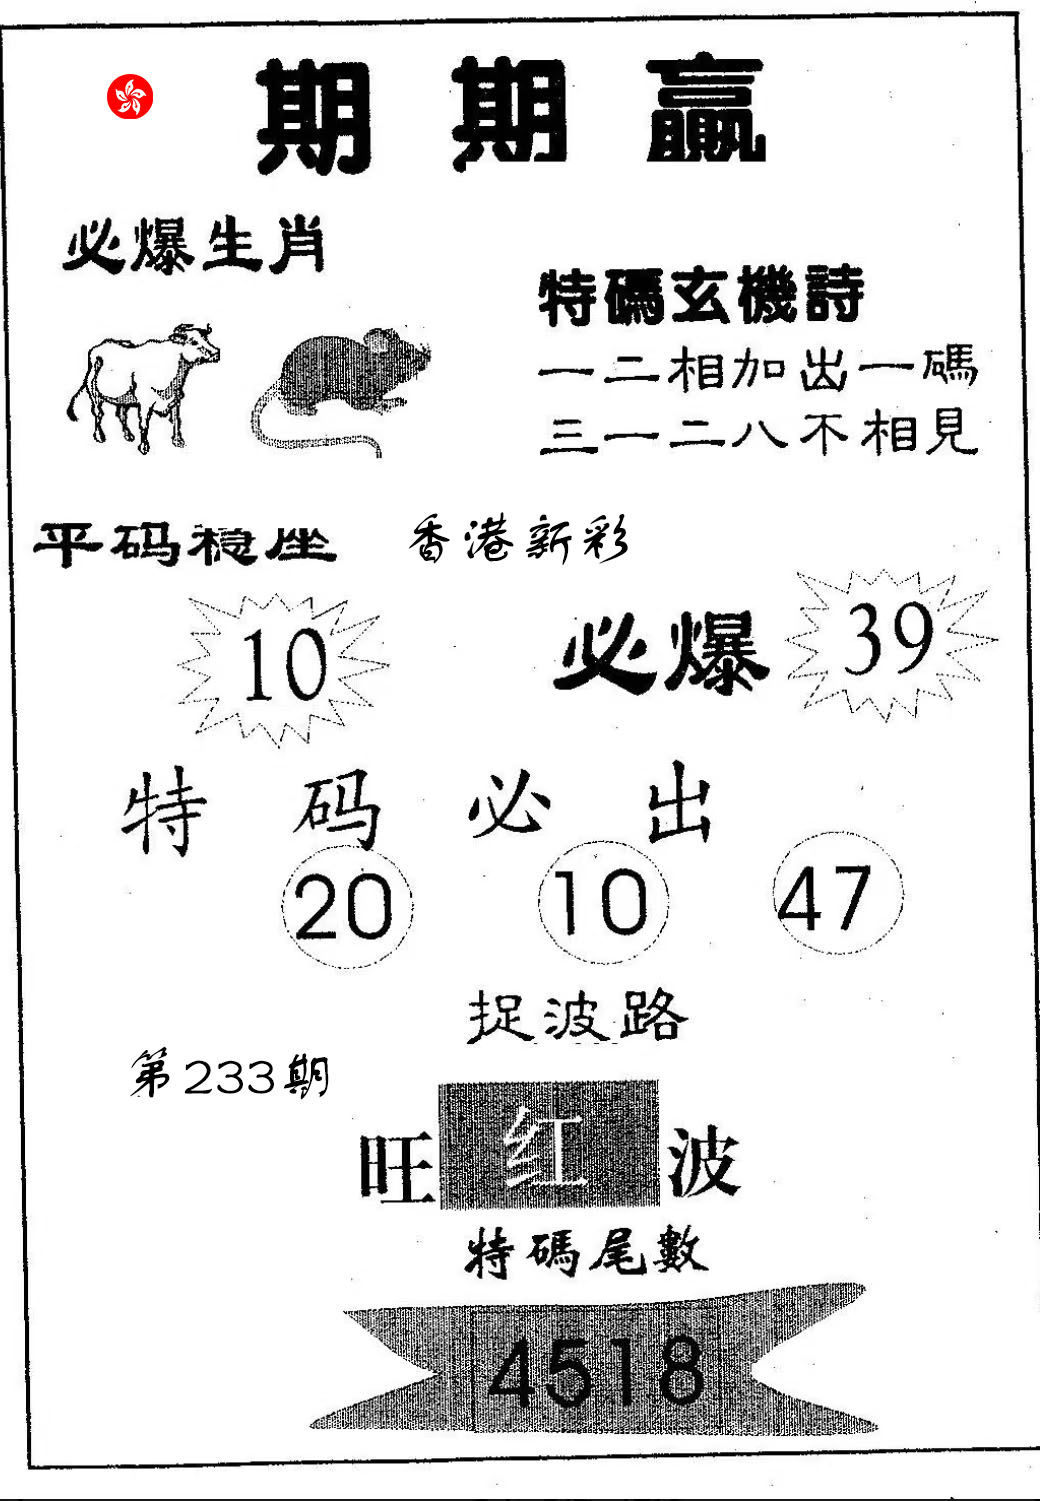 期期赢
必爆生肖
特碼玄機詩
一二相加出一碼
三一二八不相見
平码稳座
香港新彩
10
必爆 39
特码必出
20 10 47
捉波路
第233期
旺红波
特碼尾數
4518